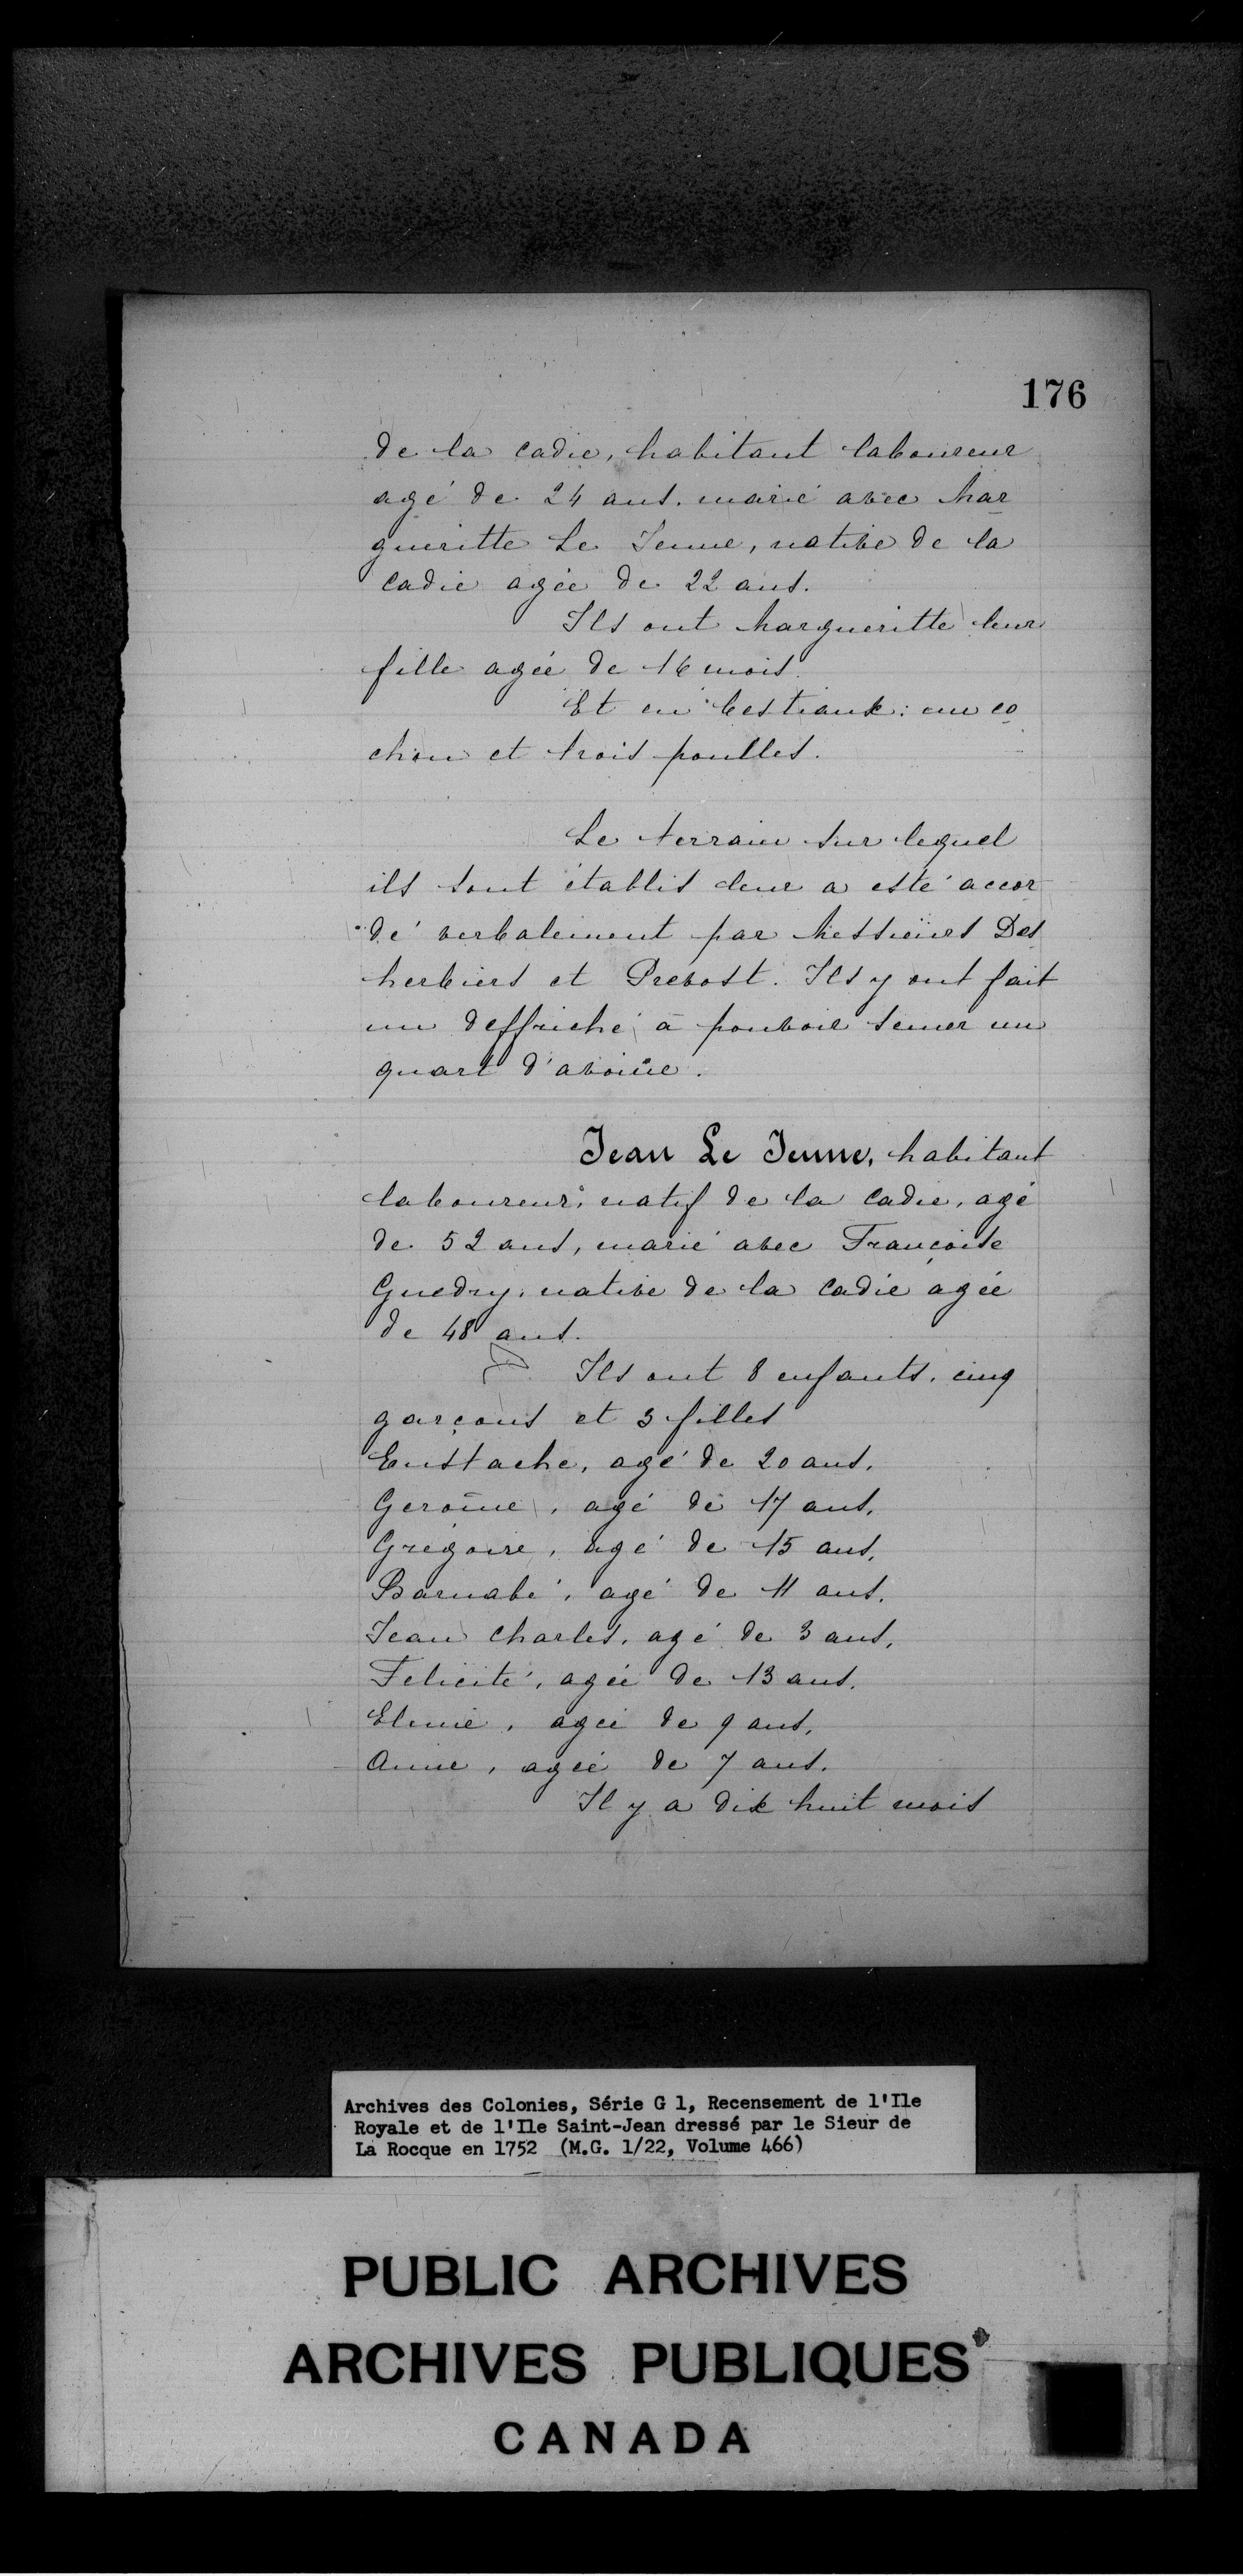 176
de la Cadie, habitant laboureur
agé de 24 ans. marié avec Mar
gueritte Le Jeune, native de la
Cadie agée de 22 ans.
Ils ont Margueritte leur
fille agée de 16 mois.
Et en bestiaux : un co
chon et trois poulles.
Le terrain sur lequel
ils sont établis leur a esté accor
dé verbalement par Messieurs Des
herbiers et Prevost. Ils y ont fait
un deffriché à pouvoir semer un
quart d'avoine.
Jean Le Jeune, habitant
laboureur, natif de la Cadie, agé
de 52 ans, marié avec Françoise
Guedry, native de la Cadie agée
de 48 ans.
Ils ont 8 enfants, cinq
garçons et 3 filles
Eustache, agé de 20 ans,
Gerome, agé de 17 ans,
Grégoire, agé de 15 ans,
Barnabé, agé de 11 ans,
Jean Charles, agé de 3 ans,
Felicité, agée de 13 ans,
agée de 9 ans,
Anne, agée de 7 ans.
Il y a dix huit mois
Archives des Colonies, Série G 1, Recensement de l'Ile
Royale et de l'Ile Saint-Jean dressé par le Sieur de
La Rocque en 1752 (M.G. 1/22, Volume 466)
PUBLIC ARCHIVES
ARCHIVES PUBLIQUES
CANADA